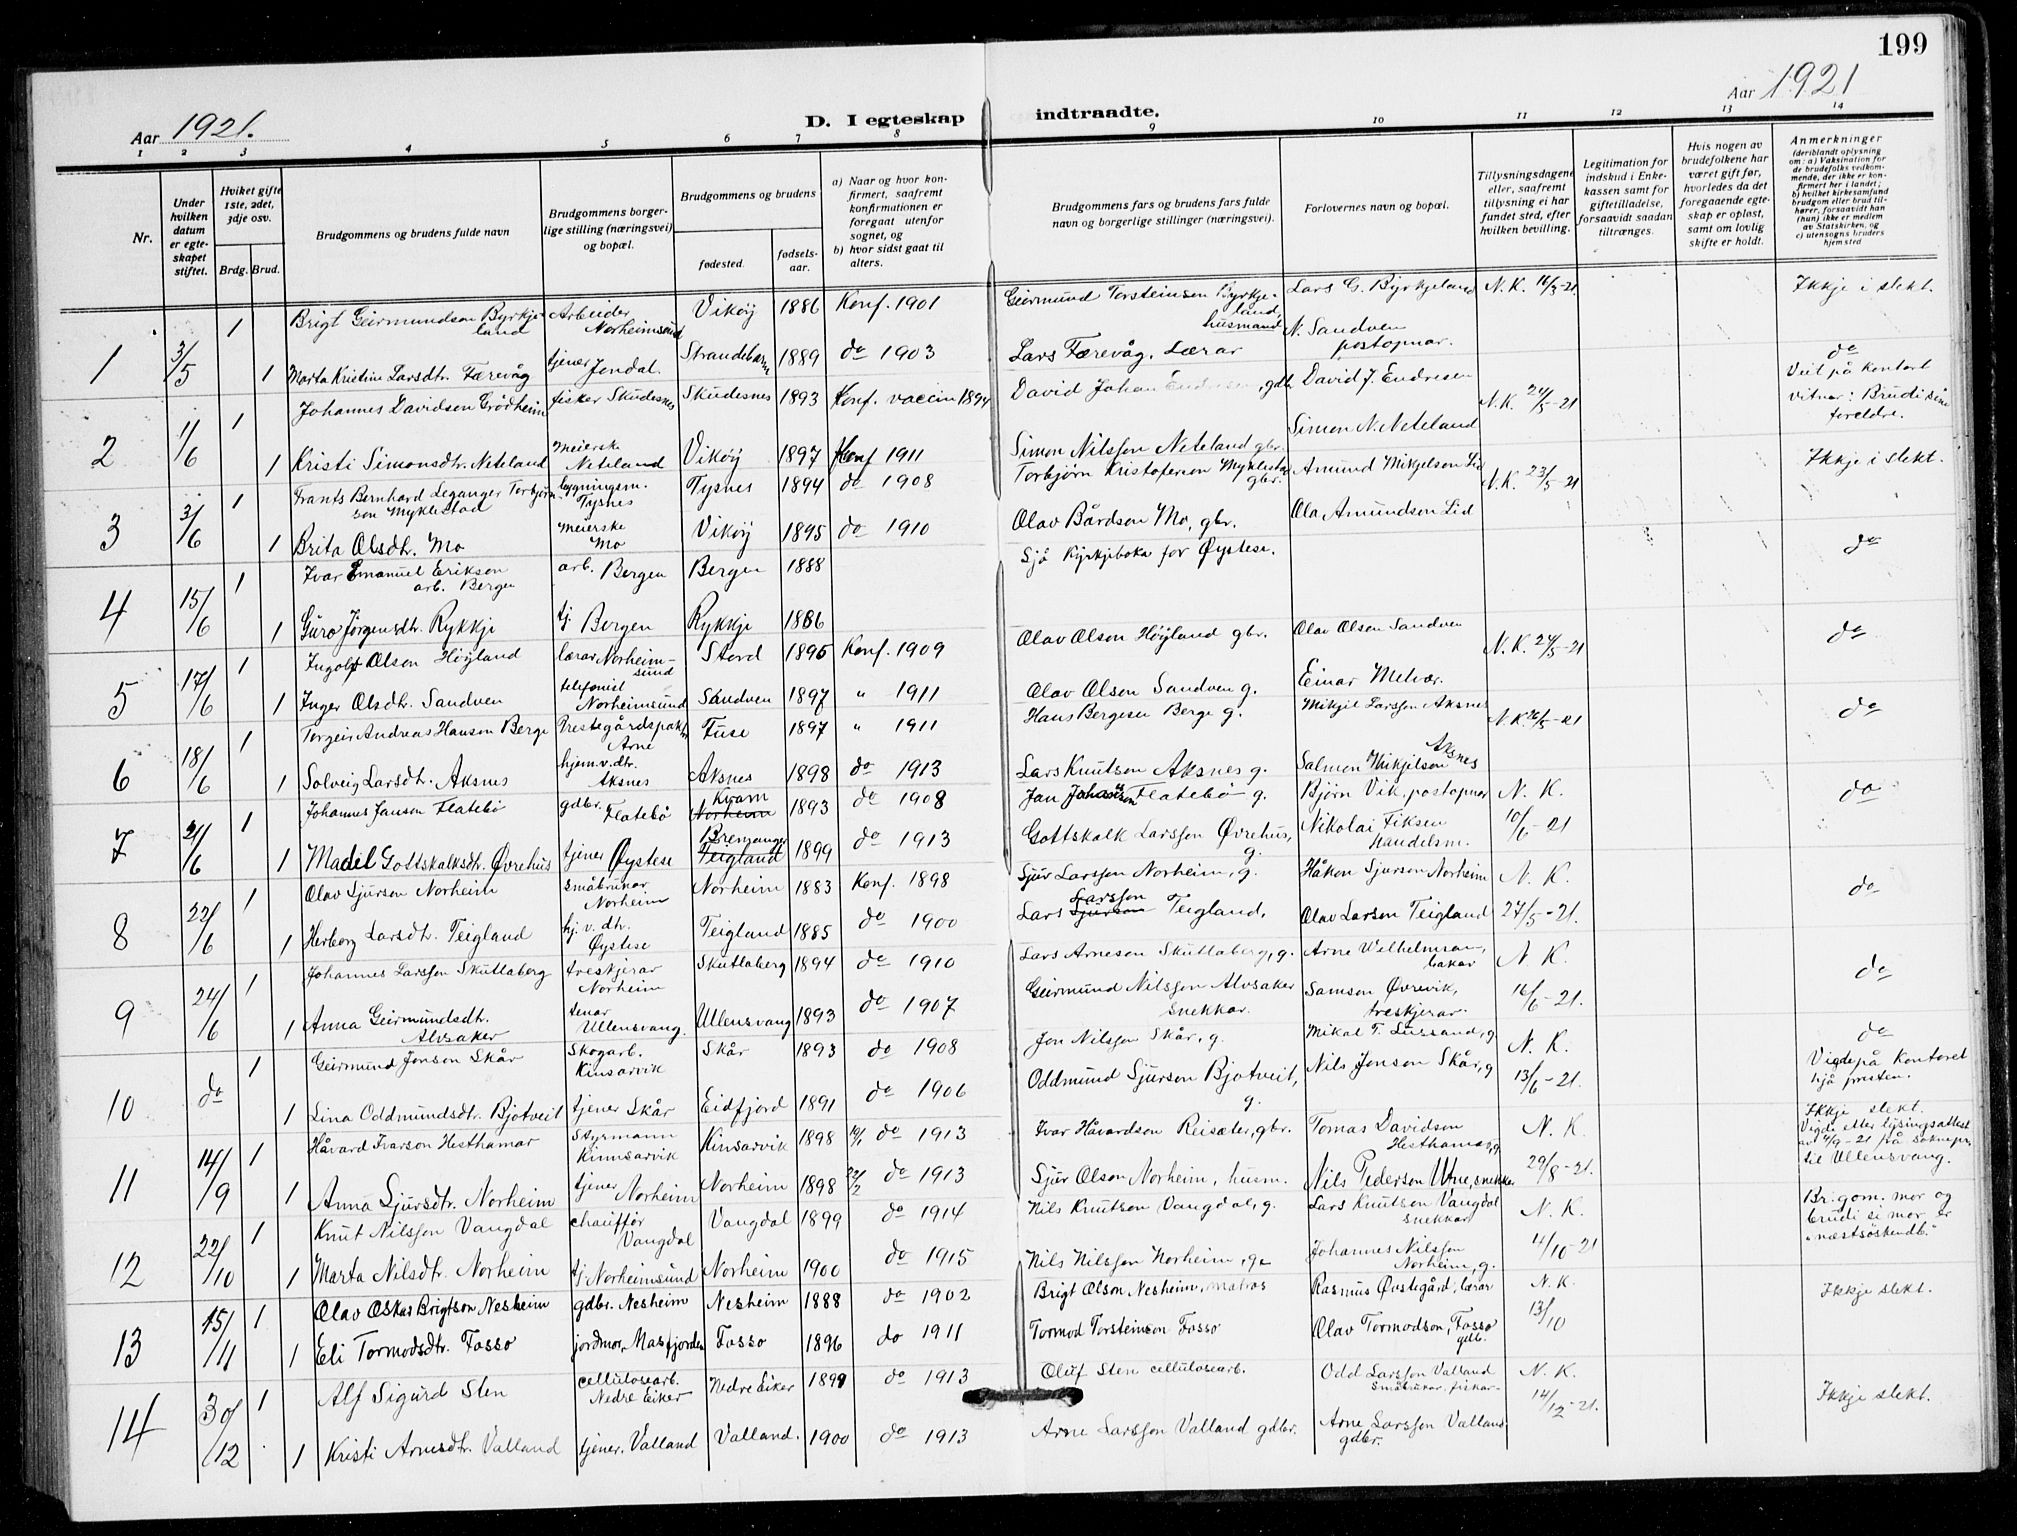 199
Aar 1921.
D. I egteskap indtraadte.
Aar 1921
1 2 3 4 5 6 7 8 9 10 11 12 13 14
Nr.
Under hvilken datum er egteskapet stiftet.
Hviket gifte 1ste, 2det, 3dje osv.
Brdg. Brud.
Brudgommens og brudens fulde navn
Brudgommens borgerlige stilling (næringsvei) og bopæl.
Brudgommens og brudens
fødested.
fødselsaar.
a) Naar og hvor konfirmert, saafremt konfirmationen er foregaat utenfor sognet, og
b) hvor sidst gaat til alters.
Brudgommens fars og brudens fars fulde navn og borgerlige stillinger (næringsvei).
Forlovernes navn og bopæl.
Tillysningsdagene eller, saafremt tillysning ei har fundet sted, efter hvilken bevilling.
Legitimation for indskud i Enkekassen samt for giftetilladelse, forsaavidt saadan tiltrænges.
Hvis nogen av brudefolkene har været gift før, hvorledes da det foregaaende egteskap er opløst, samt om lovlig skifte er holdt.
Anmerkninger (deriblandt oplysning om: a) Vaksination for de brudefolks vedkommende, der ikke er konfirmert her i landet; b) hvilket kirkesamfund brudgom eller brud tilhører, forsaavidt han (hun) ikke er medlem av Statskirken, og c) utensogns bruders hjemsted
1 3/5 1 Brigt Geirmundson Byrkjeland Arbeider Norheimsund Vikøy 1886 Konf. 1901 Geirmund Torsteinson Byrkjeland, husmand Lars G. Byrkjeland N. K. 11/3-21 Ikkje i slekt.
1 Marta Kristine Larsdtr. Færevåg tjener Jondal. Strandebarm 1889 do 1903 Lars Færevåg, Lærar N. Sandven postopnar. do
2 1/6 1 Johannes Davidson Grødheim fisker Skudesnes Skudesnes 1893 Konf. vaccin 1894 David Johan Endresen, gdbr David J. Endresen N.K. 24/5-21 Viet på kontort vitner: Brudi sine foreldre.
1 Kristi Simonsdtr. Neteland Meierske Neteland Vikøy 1897 Konf 1911 Simon Nilsson Neteland gbr. Simon N. Neteland
3 3/6 1 Frants Bernhard Leganger Torbjørnson Myklestad bygningsm. Tysnes Tysnes 1894 do 1908 Torbjørn Kristoferson Myklestad gbr. Amund Mikjelson Lid N.K. 23/5-21 Ikkje i slekt.
1 Brita Olsdtr. Mo Meierske Mo Vikøy 1895 do 1910 Olav Bårdson Mo, gbr. Ola Amundson Lid
4 15/6 1 Ivar Emanuel Erikson arb. Bergen arb. Bergen Bergen 1888 Sjå Kyrkjeboka for Øystese. do
1 Guro Jørgensdtr. Rykkje tj. Bergen Rykkje 1886
5 17/6 1 Ingolf Olson Høyland lærar Norheimsund Stord 1895 Konf. 1909 Olav Olson Høyland gbr. Olav Olson Sandven N.K. 24/5-21 do
1 Inger Olsdtr. Sandven telefonist Norheimsund Sandven 1897 " 1911 Olav Olson Sandven g. Einar Melvær.
6 18/6 1 Torgeir Andreas Hanson Berge Prestegårdspakt. Arne Fuse 1897 " 1911 Hans Bergesen Berge g. Mikjel Larsson Aksnes N.K. 26/5-21 do
1 Solveig Larsdtr. Aksnes hjem.v.dtr. Aksnes Aksnes 1898 do 1913 Lars Knutson Aksnes g. Salmon Mikjelson Aksnes
7 21/6 1 Johannes Janson Flatebø gdbr. Flatebø Kvam Norheim 1893 do 1908 Jan Flatebø g. Bjørn Vik, postopnar N. K. do
1 Madel Gottskalksdtr. Øvrehus tjener Øystese Bremanger Teigland 1899 do 1913 Gottskalk Larsson Øvrehus, g. Nikolai Fiksen handelsm. 10/6-21
8 22/6 1 Olav Sjurson Norheim småbrukar Norheim Norheim 1883 Konf. 1898 Sjur Larsson Norheim, g. Håkon Sjurson Norheim N. K. do
1 Herborg Larsdtr. Teigland hj. v. dtr. Øystese Teigland 1885 do 1900 Lars Sjurson Larsson Teigland, Olav Larson Teigland 27/5-21.
9 24/6 1 Johannes Larsson Skutlaberg treskjerar Norheim Skutlaberg 1894 do 1910 Lars Arneson Skutlaberg, g. Arne Wilhelmsen, bakar N. K. do
1 Anna Geirmundsdtr. Alvsaker tenar Ullensvang. Ullensvang 1893 do 1907 Geirmund Nilsson Alvsaker snekkar. Samson Øvrevik, treskjerar. 14/6-21.
10 do 1 Geirmund Jonson Skår Skogarb. Kinsarvik Skår 1893 do 1908 Jon Nilsson Skår, g. Mikal T. Lussand, g N. K. do Vigde på Kontoret hjå presten.
1 Lina Oddmundsdtr. Bjotveit tjener Skår Eidfjord 1891 do 1906 Oddmund Sjurson Bjotveit, g. Nils Jonson Skår, g 13/6-21.
11 14/9 1 Håvard Ivarson Hesthamar Styrmann Kinnsarvik Kinsarvik 1898 do 1913 Ivar Håvardson Reisæter, gbr. Tomas Davidson Hesthamar, g N. K. Ikkje slekt. Vigde etter lysingsattest av 4/9-21 på sokneprn til Ullensvang.
1 Anna Sjursdtr. Norheim tjener Norheim Norheim 1898 22/2 do 1913 Sjur Olson Norheim, husm. Nils Pederson Utne, snekker 29/8-21.
12 22/10 1 Knut Nilsson Vangdal chauffør Vangdal Vangdal 1899 do 1914 Nils Knutson Vangdal, g. Lars Knutson Vangdal snekkar N. K. Br.gom. mor og brudi si mor er "næstsöskendb."
1 Marta Nilsdtr. Norheim tj. Norheimsund Norheim 1900 do 1915 Nils Nilsson Norheim, g. Johannes Nilsson Norheim, g. 4/10-21
13 15/11 1 Olav Oskar Brigtson Nesheim gdbr. Nesheim Nesheim 1888 do 1902 Brigt Olson Nesheim, matros Rasmus Øvstegård, lærar N. K. Ikkje slekt.
1 Eli Tormodsdtr. Fosso jordmor, Masfjorden Fosso 1896 do 1911 Tormod Torsteinson Fosso Olav Tormodson, Fosso gdb. 13/10
14 30/12 1 Alf Sigurd Sten cellulosearb. Nedre Eiker Nedre Eiker 1899 do 1913 Oluf Sten cellulosearb. Odd Larsson Valland småbrukar, fiskar N. K. Ikkje slekt.
1 Kristi Arnesdtr. Valland tjener. Valland Valland. 1900 do 1913 Arne Larsson Valland gdbr. Arne Larsson Valland gdbr. 14/12-21.